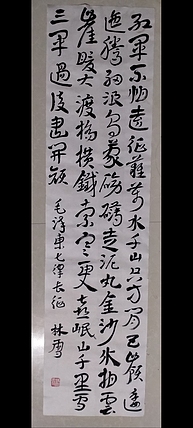 紅軍不怕遠征難萬水千山只等閒五嶺逶
迤騰細浪烏蒙磅礴走泥丸金沙水拍雲
崖暖大渡橋橫鐵索寒更喜岷山千里雪
三軍過後盡開顏
毛澤東七律長征 林